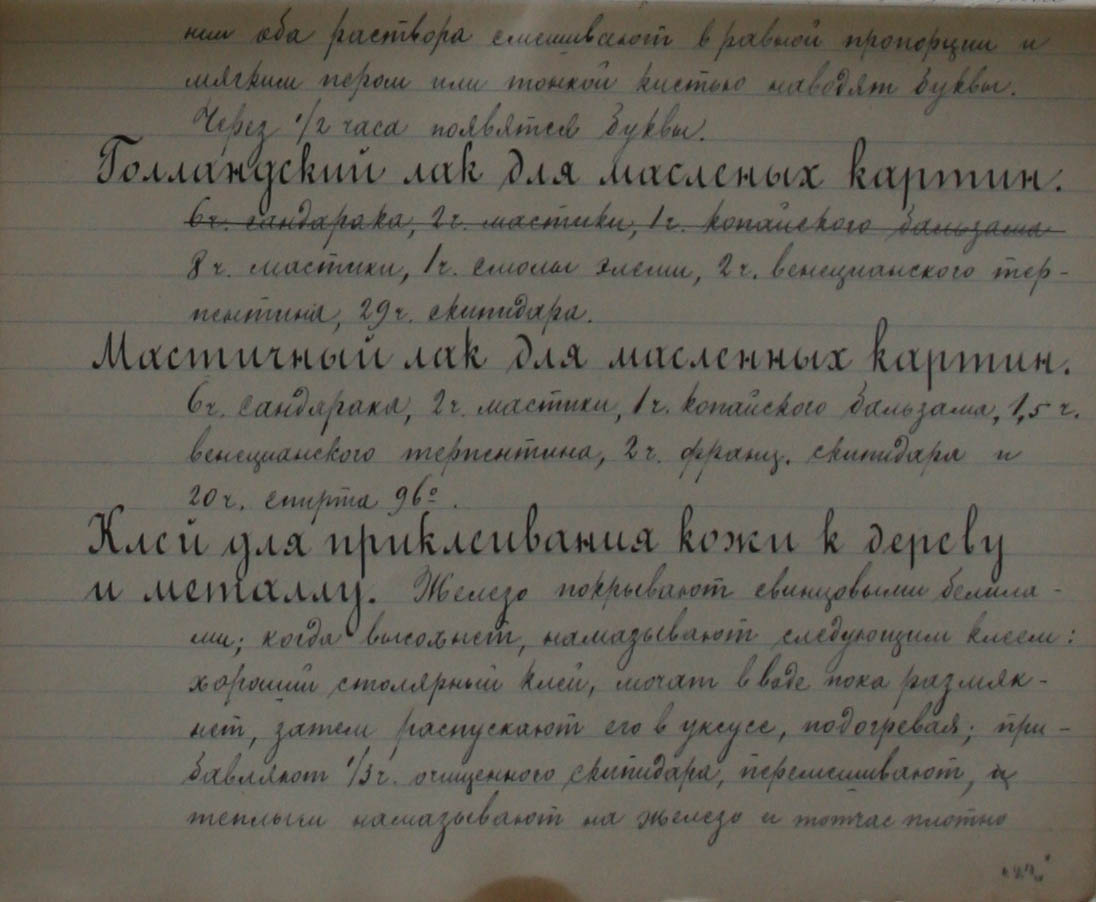 нии оба раствора смешивают в равной пропорции и
мягким пером или тонкой кистью наводят буквы.
Через 1/2 часа появятся буквы.
Голландский лак для масленых картин.
6 ч. сандарака, 2 ч. мастики, 1 ч. копайского бальзама
8 ч. мастики, 1 ч. смолы элеми, 2 ч. венецианского тер-
пентина, 29 ч. скипидара.
Мастичный лак для масленных картин.
6 ч. сандарака, 2 ч. мастики, 1 ч. копайского бальзама, 1,5 ч.
венецианского терпентина, 2 ч. франц. скипидара и
20 ч. спирта 96°.
Клей для приклеивания кожи к дереву
и металлу. Железо покрывают свинцовыми белила-
ми; когда высохнет, намазывают следующим клеем:
хороший столярный клей, мочат в воде пока размяк-
нет, затем распускают его в уксусе, подогревая; при-
бавляют 1/3 ч. очищенного скипидара, перемешивают, и
теплым намазывают на железо и тотчас плотно